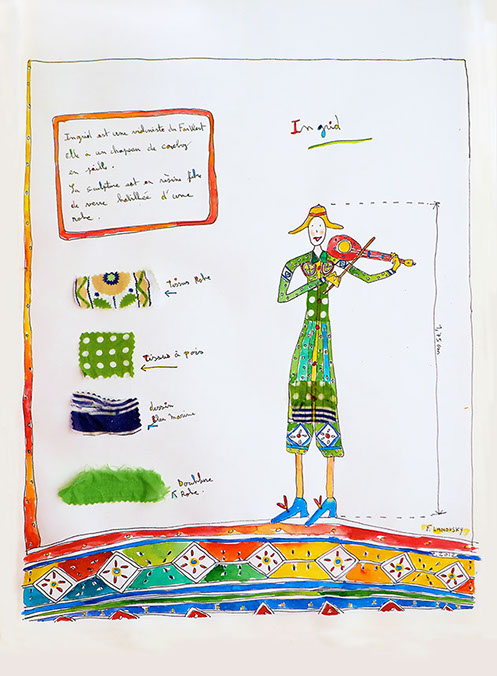 Ingrid est une violoniste du Far West
elle a un chapeau de cowboy
en paille.
La sculpture est en résine fibre
de verre habillée d'une
robe.
Ingrid
Tissus Robe
Tissus à pois
dessin
Bleu marine
Doublure
Robe.
1,75 cm
F. LANDOSKY